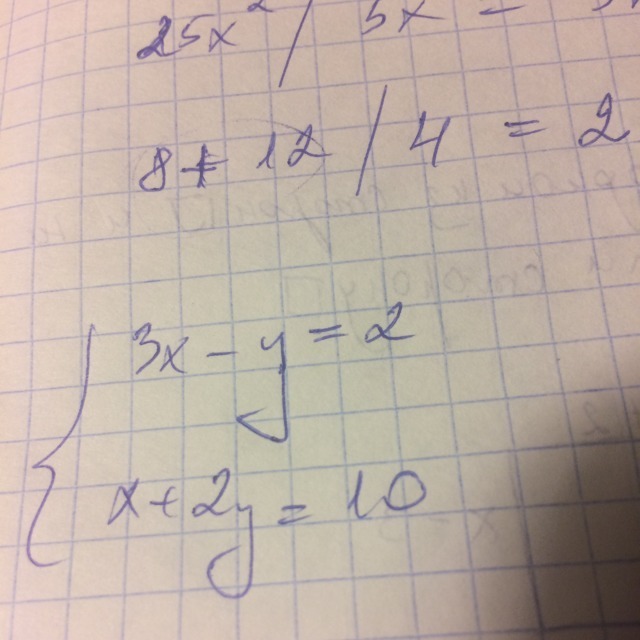 25x² / 5x =
8 + 12 / 4 = 2
3x - y = 2
x + 2y = 10